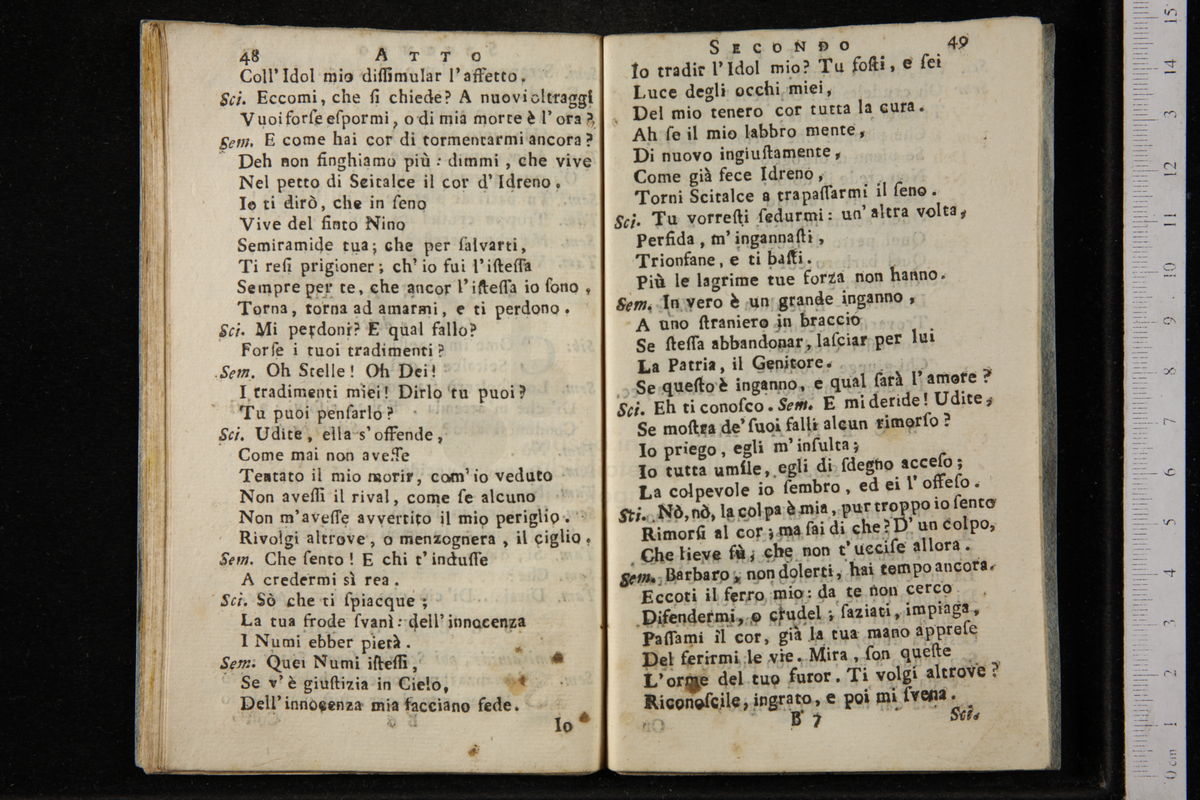 48 ATTO
Coll' Idol mio diſſimular l'affetto.
Sci. Eccomi, che ſi chiede? A nuovi oltraggi
Vuoi forſe eſpormi, o di mia morte è l'ora?
Sem. E come hai cor di tormentarmi ancora?
Deh non finghiamo più: dimmi, che vive
Nel petto di Scitalce il cor d'Idreno.
Io ti dirò, che in ſeno
Vive del finto Nino
Semiramide tua; che per ſalvarti,
Ti reſi prigioner; ch'io fui l'iſteſſa
Sempre per te, che ancor l'iſteſſa io ſono,
Torna, torna ad amarmi, e ti perdono.
Sci. Mi perdoni? E qual fallo?
Forſe i tuoi tradimenti?
Sem. Oh Stelle! Oh Dei!
I tradimenti miei! Dirlo tu puoi?
Tu puoi penſarlo?
Sci. Udite, ella s'offende,
Come mai non aveſſe
Tentato il mio morir, com'io veduto
Non aveſſi il rival, come ſe alcuno
Non m'aveſſe avvertito il mio periglio.
Rivolgi altrove, o menzognera, il ciglio.
Sem. Che ſento! E chi t'induſſe
A credermi sì rea.
Sci. Sò che ti ſpiacque;
La tua frode ſvanì: dell'innocenza
I Numi ebber pietà.
Sem. Quei Numi iſteſſi,
Se v'è giuſtizia in Cielo,
Dell'innocenza mia facciano fede.
Io
SECONDO 49
Io tradir l'Idol mio? Tu foſti, e ſei
Luce degli occhi miei,
Del mio tenero cor tutta la cura.
Ah ſe il mio labbro mente,
Di nuovo ingiuſtamente,
Come già fece Idreno,
Torni Scitalce a trapaſſarmi il ſeno.
Sci. Tu vorreſti ſedurmi: un'altra volta,
Perfida, m'ingannaſti,
Trionfane, e ti baſti.
Più le lagrime tue forza non hanno.
Sem. In vero è un grande inganno,
A uno ſtraniero in braccio
Se ſteſſa abbandonar, laſciar per lui
La Patria, il Genitore.
Se queſto è inganno, e qual ſarà l'amore?
Sci. Eh ti conoſco. Sem. E mi deride! Udite,
Se moſtra de'ſuoi falli alcun rimorſo?
Io priego, egli m'inſulta;
Io tutta umile, egli di ſdegno acceſo;
La colpevole io ſembro, ed ei l'offeſo.
Sci. Nò, nò, la colpa è mia, pur troppo io ſento
Rimorſi al cor; ma ſai di che? D'un colpo,
Che lieve fù, che non t'ucciſe allora.
Sem. Barbaro, non dolerti, hai tempo ancora.
Eccoti il ferro mio: da te non cerco
Difendermi, o crudel; ſaziati, impiaga,
Paſſami il cor, già la tua mano appreſe
Del ferirmi le vie. Mira, ſon queſte
L'orme del tuo furor. Ti volgi altrove?
Riconoſcile, ingrato, e poi mi ſvena.
B 7 Sci.
15
14
13
12
11
10
9
8
7
6
5
4
3
2
1
0 cm